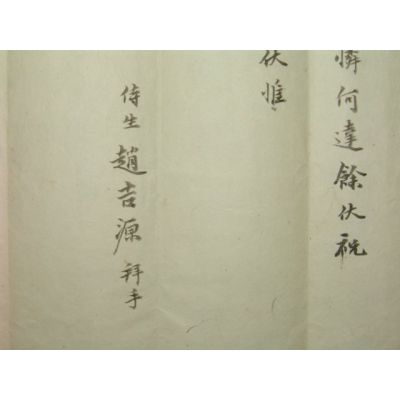 憐何達餘伏祝
伏惟
侍生趙吉源拜手